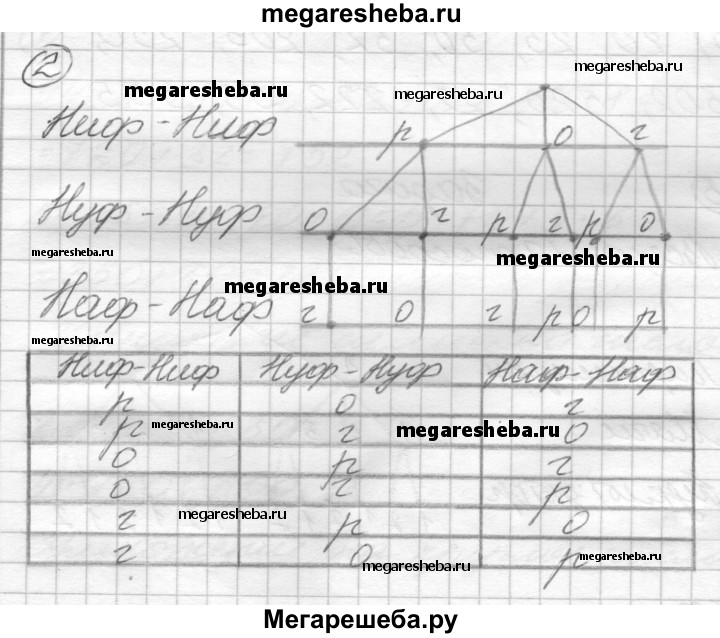 megaresheba.ru
2
megaresheba.ru
megaresheba.ru
megaresheba.ru
Ниф - Ниф р о г
Нуф - Нуф о г р г р о
megaresheba.ru
megaresheba.ru
megaresheba.ru
Наф - Наф г о г р о р
megaresheba.ru
Ниф-Ниф Нуф - Нуф Наф - Наф
р о г
р г о
megaresheba.ru
megaresheba.ru
о р г
о г р
г р о
megaresheba.ru
megaresheba.ru
г о р
megaresheba.ru
megaresheba.ru
Мегарешеба.ру